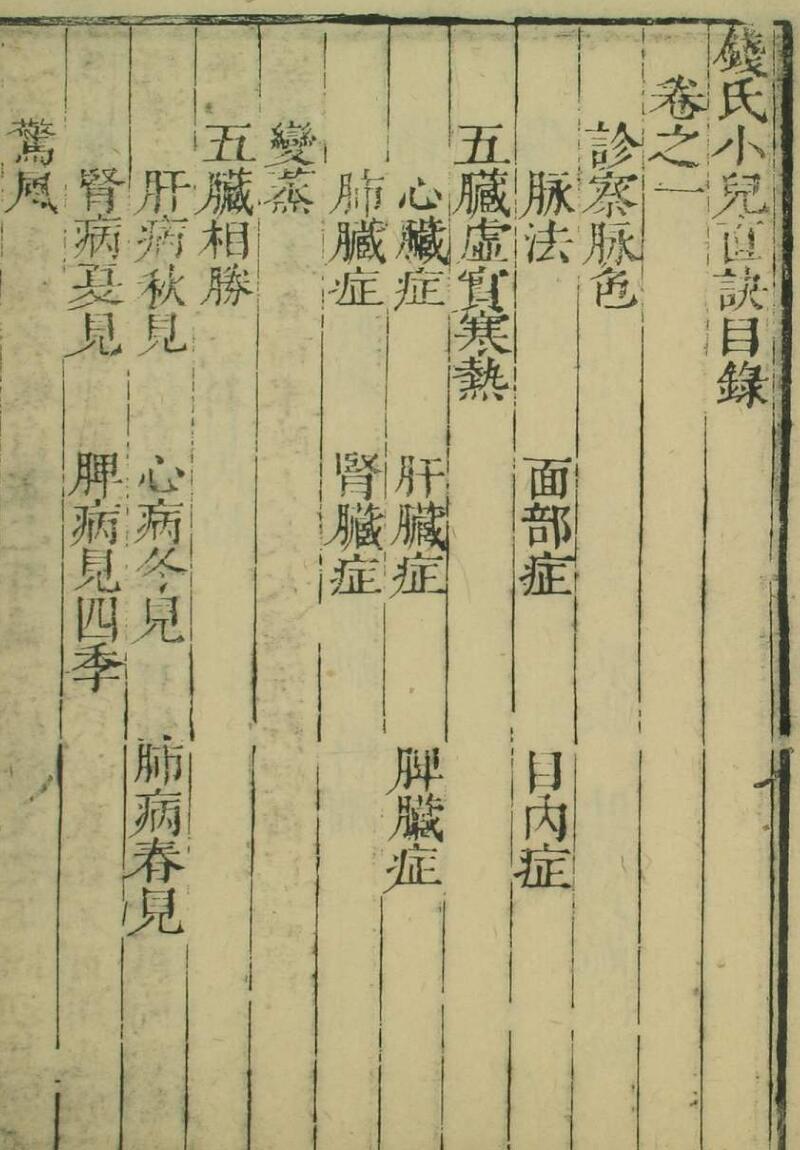 錢氏小兒直訣目錄
卷之一
診察脉色
脉法　面部症　目內症
五臟虛實寒熱
心臟症　肝臟症　脾臟症
肺臟症　腎臟症
變蒸
五臟相勝
肝病秋見　心病冬見　肺病春見
腎病夏見　脾病見四季
驚風